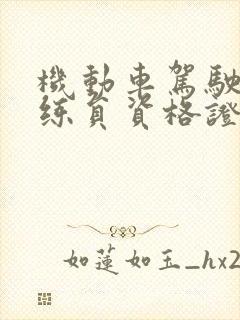 機動車駕駛
練員資格證
如蓮如玉_hx2